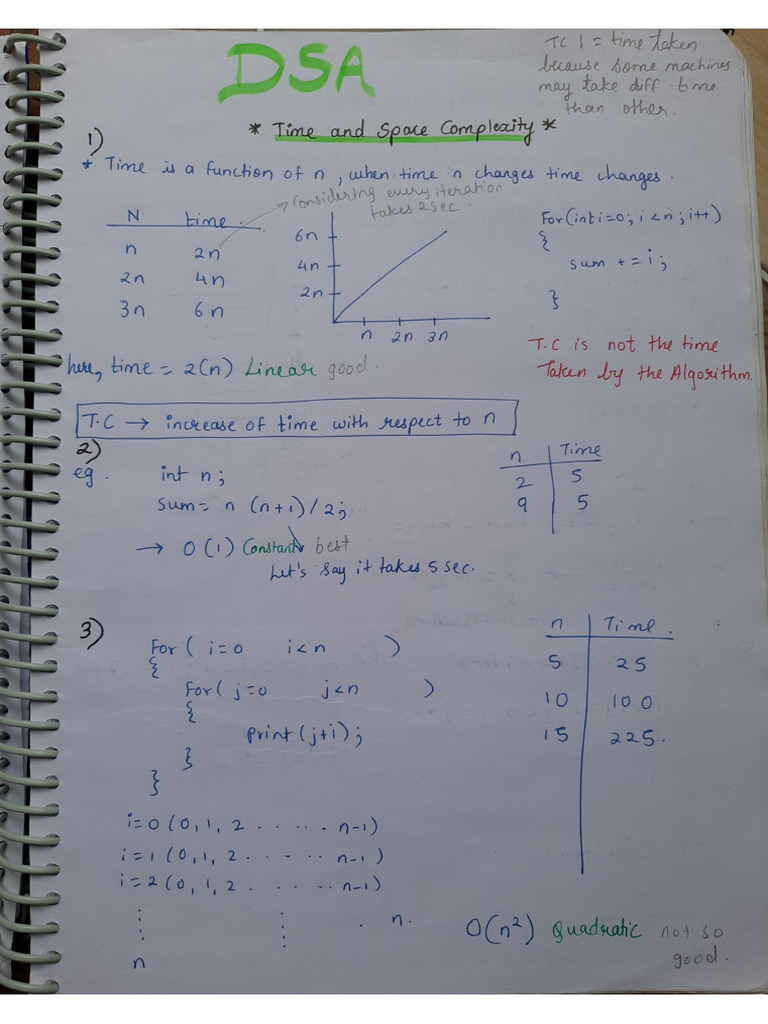 DSA
TC != time taken
because some machines
may take diff. time
than other.
* Time and Space Complexity *
1)
* Time is a function of n, when time n changes time changes.
N. time.
n 2n
2n 4n
3n 6n
considering every iteration
takes 2 sec.
6n
4n
2n
n 2n 3n
For(int i=0; i<n; i++)
{
sum += i;
}
T.C is not the time
Taken by the Algorithm.
here, time = 2(n) Linear good.
T.C → increase of time with respect to n
2)
eg. int n;
sum = n (n+1)/2;
→ O(1) Constant best
Let's say it takes 5 sec.
n Time
2 5
9 5
3)
For( i=0 i<n )
{
For( j=0 j<n )
{
print(j+i);
}
}
n Time.
5 25
10 100
15 225.
i=0 (0, 1, 2 ...... n-1)
i=1 (0, 1, 2 ...... n-1)
i=2 (0, 1, 2 ...... n-1)
. n.
n
O(n²) Quadratic not so
good.